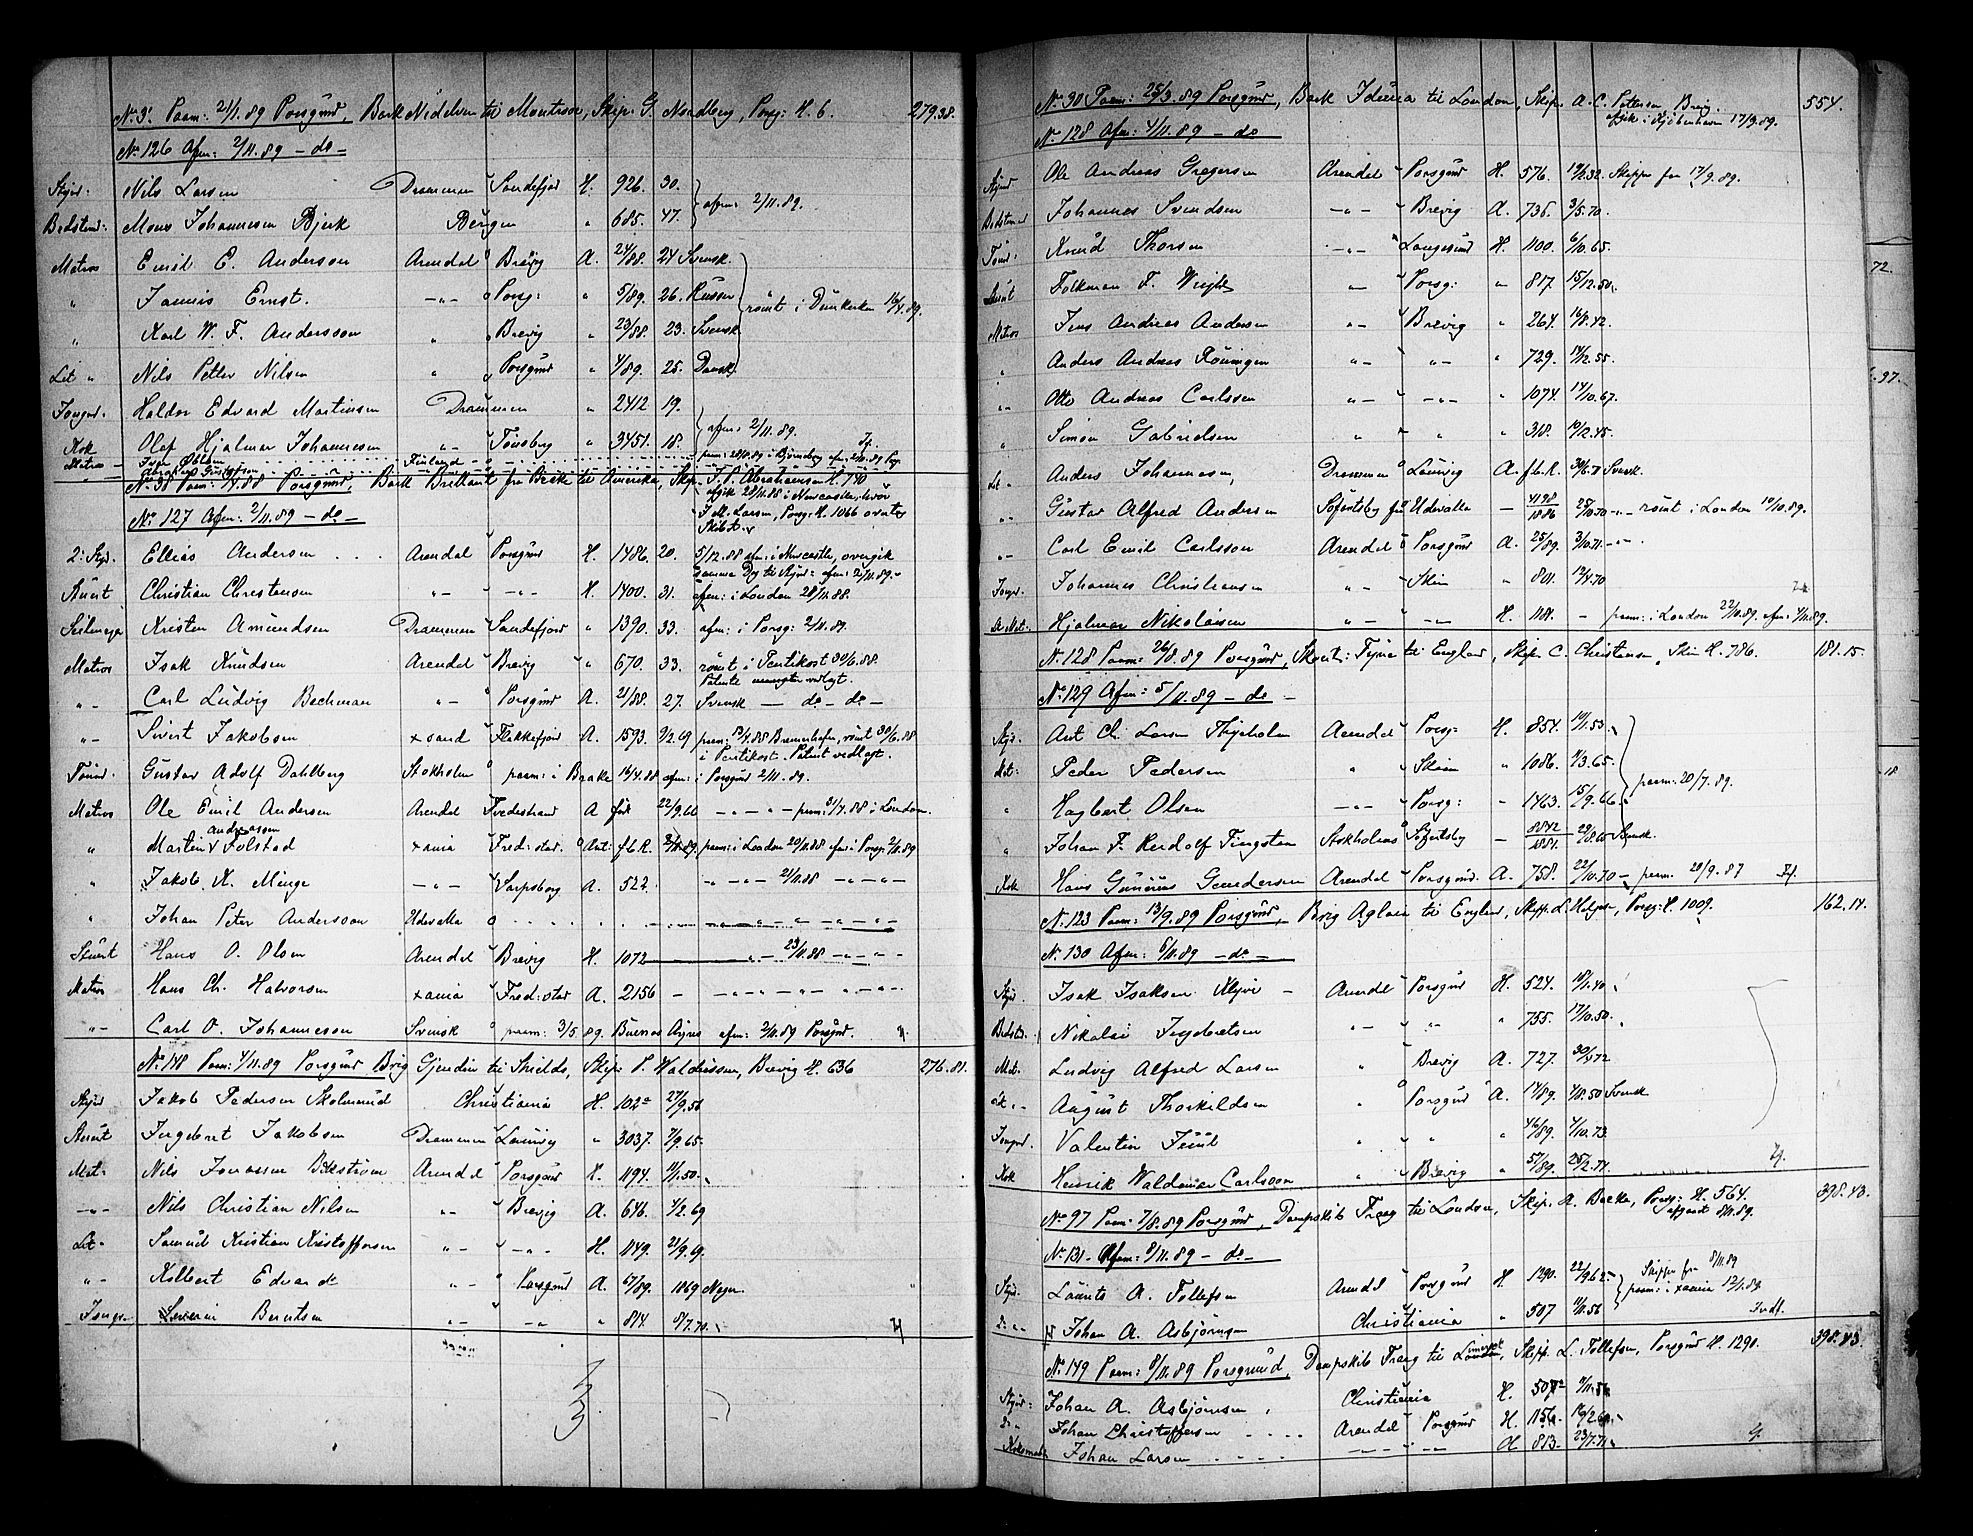 No 3. Paam: 21/1.89 Porsgund, Bark Nidelven til Montrose, Skip: G. Nordberg, Porsg: H. 6. 279.38.
No 126 Afm: 2/11.89 - do -
Styrd: Nils Larsen Drammen Sandefjord H. 926. 30.
afm: 2/11.89.
Bedstmd: Mons Johannesen Bjerk Bergen " 685. 47.
Matros Emil E. Anderson Arendal Brevig A. 24/88 24 Svensk.
" Jannis Ernst. -"- Porsg: " 5/89. 26. Russer
rømt i Dunkerken 16/4.89.
" Karl W. F. Andersson " Brevig " 23/88 23. Svensk
Let " Nils Petter Nilsen " Porsgund " 4/89. 25. Dansk
Jongm. Haldor Edvard Martinsen Drammen " 2412 19.
afm: 2/11.89.
Kok Olaf Hjalmar Johannesen -"- Tønsberg " 3451. 18.
Matros Finland
No 38 Paam: 1/4.88 Porsgund, Bark Brillant fra Brake til Amerika, Skip. J. P. Abrahamsen H. 740
afgik 28/11.88 i Newcastle, hvor
J. M. Larsen, Porsg: H. 1066 overtog
Skibet.
No 127 Afm: 2/11.89 - do -
2: Styr. Ellias Andersen Arendal Porsgund H. 1486. 20. 5/12.88 afm: i Newcastle, overgik
samme Dag til Styrd: afm: 2/11.89.
Stuert Christian Christensen "- -"- H. 1400. 31. afm: i London 28/11.88.
Seilmager Kristen Amundsen Drammen Sandefjord " 1390. 33. afm: i Porsg: 2/11.89.
Matros Isak Knudsen Arendal Brevig " 670. 33. rømt i Pentikost 30/6.88.
"- Carl Ludvig Bechman "- Porsgund A. 21/88. 27. Svensk - do - do -
"- Sivert Jakobsen xsand Flekkefjord A. 1593. 2/2.69 paam: 13/4.88 Bremerhafen, rømt 30/6.88
i Pentikost Patent vedlagt.
Tømmd. Gustav Adolf Dahlberg Stokholm paam: i Brake 16/4.88 afm: i Porsgund 2/11.89.
Matros Ole Emil Andersen Arendal Tvedestrand A 22/9.66 -"- "- paam: 31/7.88 i London.
Andreasen
" Martin Folstad xania Fred:stad Ant: f.b.R. paam: i London 20/11.88 afm: i Porsg: 2/11.89
" Jakob K. Minge -"- Sarpsborg A. 522 -"-"- 21/11.88 -"-"-
" Johan Peter Andersson Udevalla
Stuert Hans O. Olsen Arendal Brevig H. 1072 -"- 23/11.88 -"-"-
Matros Hans Ch. Halvorsen xania Fred:stad A. 2156 - -"-"-"-"-
"- Carl O. Johannesen Svensk paam: 3/5.89. Buenos Ayres afm: 2/11.89 Porsgund.
No 148 Paam: 4/11.89 Porsgund Brig Gjendin til Shields, Skip: P. Waldersson, Brevig H. 636 276.81.
Styrd Jakob Pedersen Skolmerud Christiania H. 102a 27/9.56
Stuert Ingebret Jakobsen Drammen Laurvig " 3037. 7/9.65.
Mat: Nils Jonassen Bekstrøm Arendal Porsgund H. 1194. 9/1.50.
-"- Nils Christian Nilsen "- Brevig A. 646. 4/2.69
Let- Samuel Kristian Kristoffersen "- -"- H. 1149. 21/9.69.
"- Kolbert Edvards "- Porsgund A. 67/89. 1869 Neger.
Jongm. Severin Berntsen "- -"- " 814. 8/7.70.
No 30 Paam: 25/3.89 Porsgund, Bark Iduna til London, Skip. A. C. Pettersen Brevig. 554.
afgik i Kjøbenhavn 17/9.89.
No 128 Afm: 4/11.89 - do
Styrd Ole Andreas Gregersen Arendal Porsgund H. 576. 19/12.32. Skipper fra 17/9.89.
Bedstmd Johannes Svendsen -"- Brevig A. 736. 3/5.70.
Tømd. Knud Thorsen -"- Langesund H. 1100. 6/10.65.
Stuert Folkman F. "- Porsg: " 817. 15/12.50.
Matros Jens Andreas Andersen "- Brevig " 264. 16/8.42.
" Anders Andreas "- "- " 729. 14/12.55.
"- Otto Andreas Carlssen "- -"- " 1074. 17/10.67.
" Simon Gabrielsen " " " 318. 10/2.45.
Let - Anders Johannesen, Drammen Laurvig A. f.b.R. 30/6.71 Svensk.
"- Gustav Alfred Andersen Udevalla - 4198/1886 25/10.70 -"- rømt i London 10/10.89.
"- Carl Emil Carlsson Arendal Porsgund A. 25/89. 3/10.71 -"-
Jongd. Johannes Christiansen "- Skien " 801. 12/4.70
Mat: Hjalmar Nikolaisen "- -"- H. 1181. - paam: i London 22/10.89. afm: 4/11.89.
No 128 Paam: 26/8.89 Porsgund, Skont: Fyria til England, Skip. C. Christensen, Skien H. 786. 181.15.
No 129 Afm: 5/11.89 - do -
Styrd. Ant Ch. Larsen Thyeholm Arendal Porsg: H. 854. 10/1.53.
Let: Peder Pedersen " Skien " 1086. 11/3.65.
paam: 20/7.89.
" Hagbart Olsen -"- Porsg: " 1463. 15/9.66.
" Johan F. Rudolf Tingsten Stokholms - 8542/1881. 29/8.60 Svensk.
Kok Hans Gunnius Gundersen Arendal Porsgund. A. 758. 22/10.70 - paam: 20/9.87
No 123 Paam: 13/9.89 Porsgund, Brig Aglaia til England, Skip. L. Halvorsen, Porsg: H. 1009. 162.14.
No 130 Afm: 6/11.89 - do -
Styrd. Isak Isaksen Klyve - Arendal Porsgund H. 524. 18/1.40
Bedstm. Nikolai Ingebretsen -"- "- " 755. 17/10.50.
Mat. Ludvig Alfred Larsen Brevig A. 727.
"- August Thorkildsen " Porsgund A. 14/89. 4/8.50 Svensk
Jongd. Valentin Juul " " " 46/89. 4/10.73.
Kok Henrik Waldemar Carlsson " Brevig " 57/89. 25/2.74.
No 97 Paam: 7/8.89 Porsgund, Dampskib Traag til London, Skip. A. Backe, Porsg: H. 564. 398.43.
afgaaet 8/11.89.
No 131 - Afm: 8/11.89 - do -
Skipper fra 8/11.89
Styrd. Laurits A. Tollefsen Arendal Porsgund H. 1290. 22/9.62
paam: i xania 12/1.89.
do - Johan A. Asbjørnsen Christiania " 507 11/11.56 Indt.
No 149 Paam: 8/11.89 Porsgrund, Dampskib Traag til London, Skip. L. Tollefsen, Porsgund H. 1290. 398.43.
Styrd: Johan A. Asbjørnsen Christiania H. 507a 11/11.56
do - Johan Christoffersen Arendal Porsgund H. 1156. 16/2.60.
Johan Larsen -"- -"- H 813. 23/7.71.
72.
.97.
18